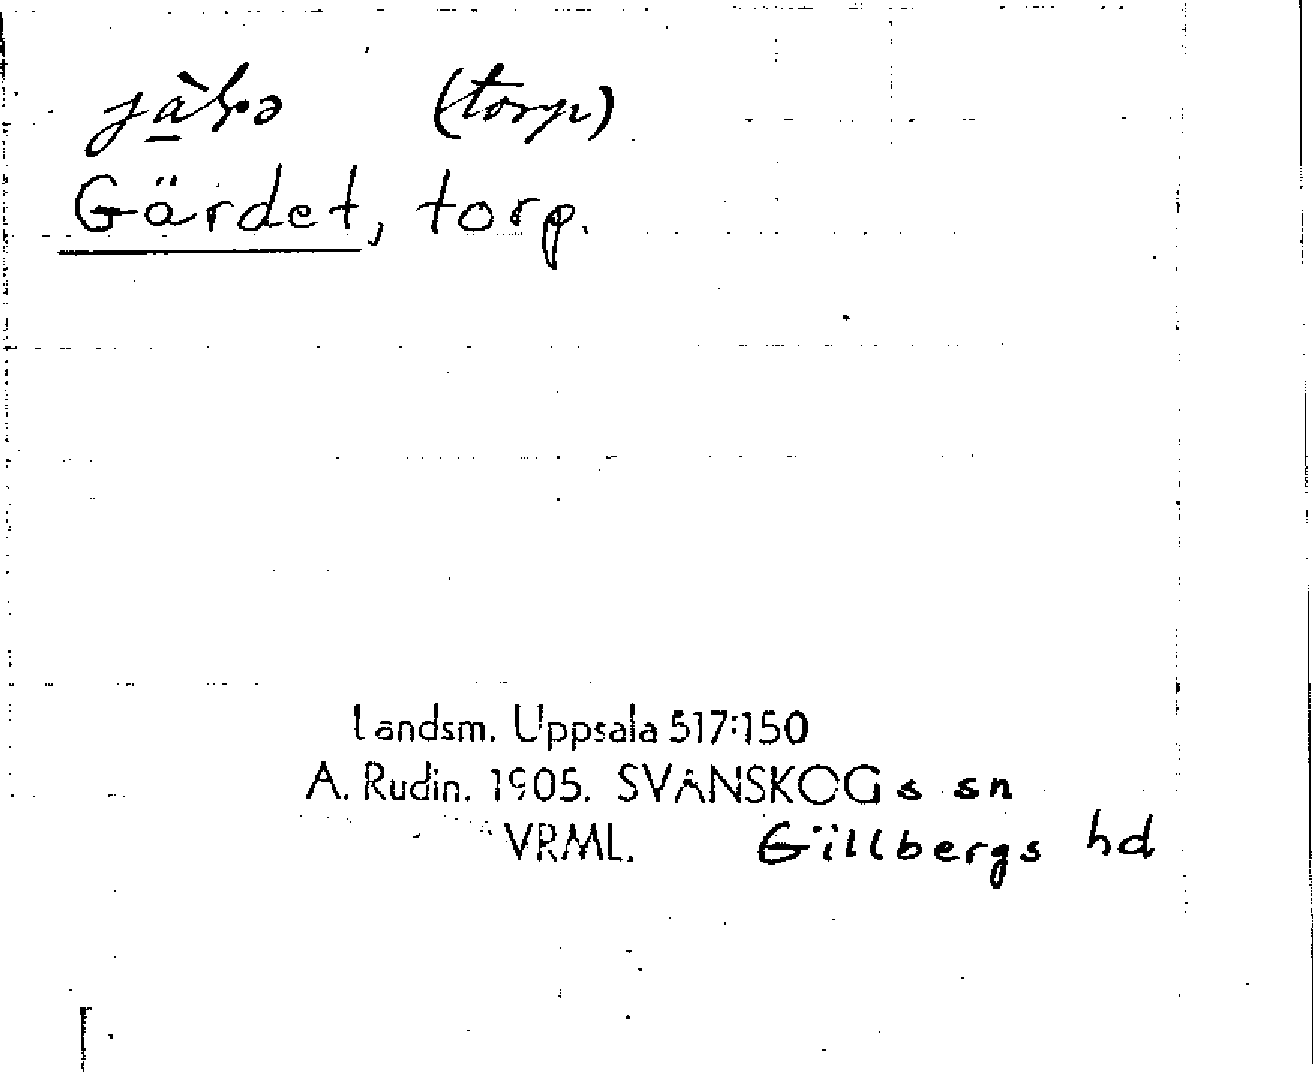 (torp)
Gärdet, torp.
Landsm. Uppsala 517:150
A. Rudin. 1905. SVANSKOGs sn
VRML. Gillbergs hd